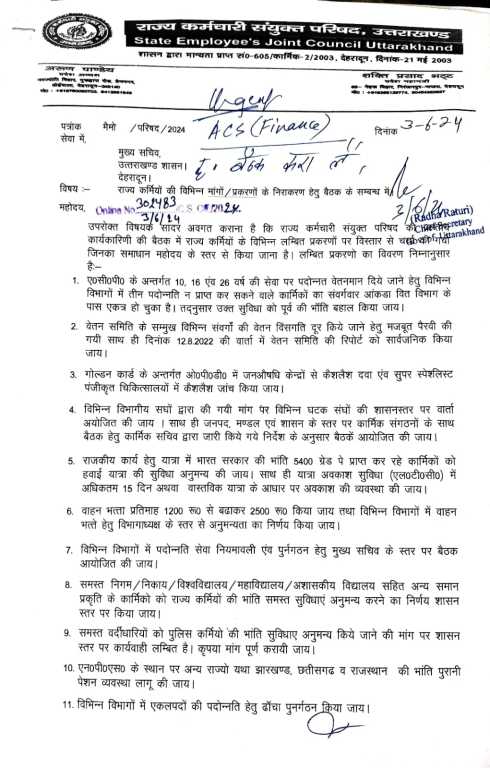 राज्य कर्मचारी संयुक्त परिषद, उत्तराखण्ड
State Employee's Joint Council Uttarakhand
शासन द्वारा मान्यता प्राप्त सं0-605/कार्मिक-2/2003, देहरादून, दिनांक-21 मई 2003
अरूण पाण्डेय
शक्ति प्रसाद भट्ट
Urgent
पत्रांक मैमो /परिषद/2024
ACS (Finance)
दिनांक 3-6-24
सेवा में,
मुख्य सचिव,
उत्तराखण्ड शासन।
देहरादून।
बैठक करा लें
विषय :– राज्य कर्मियों की विभिन्न मांगों/प्रकरणों के निराकरण हेतु बैठक के सम्बन्ध में।
महोदय,
Online No. 302483
3/6/24
3/6/24
(Radha Raturi)
Chief Secretary
Uttarakhand
उपरोक्त विषयक सादर अवगत कराना है कि राज्य कर्मचारी संयुक्त परिषद की
कार्यकारिणी की बैठक में राज्य कर्मियों के विभिन्न लम्बित प्रकरणों पर विस्तार से
जिनका समाधान महोदय के स्तर से किया जाना है। लम्बित प्रकरणो का विवरण निम्नानुसार
है:–
1. ए0सी0पी0 के अन्तर्गत 10, 16 एंव 26 वर्ष की सेवा पर पदोन्नत वेतनमान दिये जाने हेतु विभिन्न
विभागों में तीन पदोन्नति न प्राप्त कर सकने वाले कार्मिकों का संवर्गवार आंकडा वित विभाग के
पास एकत्र हो चुका है। तद्नुसार उक्त सुविधा को पूर्व की भाँति बहाल किया जाय।
2. वेतन समिति के सम्मुख विभिन्न संवर्गो की वेतन विंसगति दूर किये जाने हेतु मजबूत पैरवी की
गयी साथ ही दिनांक 12.8.2022 की वार्ता में वेतन समिति की रिपोर्ट को सार्वजनिक किया
जाय।
3. गोल्डन कार्ड के अन्तर्गत ओ0पी0डी0 में जनऔषधि केन्द्रों से कैशलैश दवा एंव सुपर स्पेश्लिस्ट
पंजीकृत चिकित्सालयों में कैशलैश जांच किया जाय।
4. विभिन्न विभागीय सघों द्वारा की गयी मांग पर विभिन्न घटक संघों की शासनस्तर पर वार्ता
अयोजित की जाय । साथ ही जनपद, मण्डल एवं शासन के स्तर पर कार्मिक संगठनों के साथ
बैठक हेतु कार्मिक सचिव द्वारा जारी किये गये निर्देश के अनुसार बैठकें आयोजित की जाय।
5. राजकीय कार्य हेतु यात्रा में भारत सरकार की भांति 5400 ग्रेड पे प्राप्त कर रहे कार्मिकों को
हवाई यात्रा की सुविधा अनुमन्य की जाय। साथ ही यात्रा अवकाश सुविधा (एल0टी0सी0) में
अधिकतम 15 दिन अथवा वास्तविक यात्रा के आधार पर अवकाश की व्यवस्था की जाय।
6. वाहन भत्ता प्रतिमाह 1200 रू0 से बढाकर 2500 रू0 किया जाय तथा विभिन्न विभागों में वाहन
भत्ते हेतु विभागाध्यक्ष के स्तर से अनुमन्यता का निर्णय किया जाय।
7. विभिन्न विभागों में पदोन्नति सेवा नियमावली एंव पुर्नगठन हेतु मुख्य सचिव के स्तर पर बैठक
आयोजित की जाय।
8. समस्त निगम/निकाय/विश्वविद्यालय/महाविद्यालय/अशासकीय विद्यालय सहित अन्य समान
प्रकृति के कार्मिको को राज्य कर्मियों की भांति समस्त सुविधाएं अनुमन्य करने का निर्णय शासन
स्तर पर किया जाय।
9. समस्त वर्दीधारियों को पुलिस कर्मियो की भांति सुविधाए अनुमन्य किये जाने की मांग पर शासन
स्तर पर कार्यवाही लम्बित है। कृपया मांग पूर्ण करायी जाय।
10. एन0पी0एस0 के स्थान पर अन्य राज्यो यथा झारखण्ड, छत्तीसगढ व राजस्थान की भांति पुरानी
पेंशन व्यवस्था लागू की जाय।
11. विभिन्न विभागों में एकलपदों की पदोन्नति हेतु ढाँचा पुनर्गठन किया जाय।